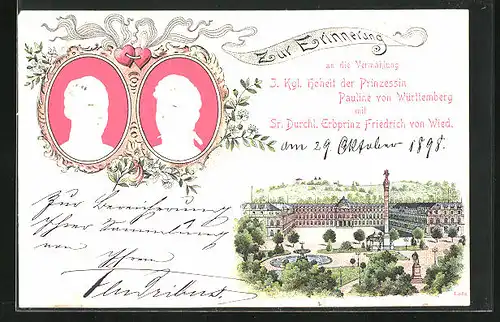 Zur Erinnerung
an die Vermählung
I. Kgl. Hoheit der Prinzessin
Pauline von Württemberg
mit
Sr. Durchl. Erbprinz Friedrich von Wied.
am 29 Oktober 1898.
Zur Bereicherung
Ihrer Sammlung
von Ihrem